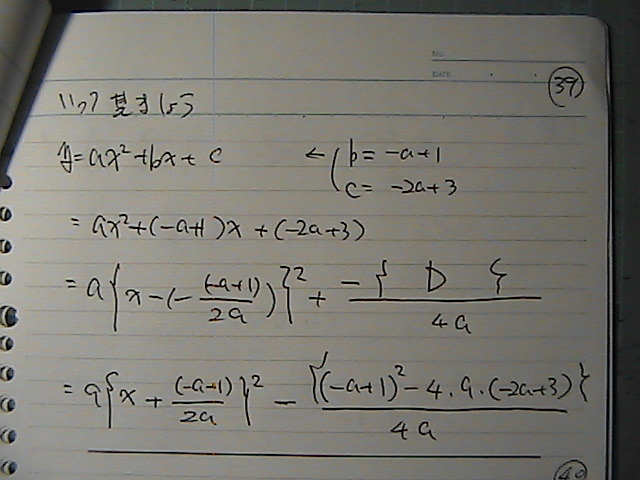 NO.
DATE
39
y=ax²+bx+c ← ( b=-a+1
c=-2a+3
=ax²+(-a+1)x+(-2a+3)
=a{x-(-(-a+1)/2a)}²+-{ D }/4a
=a{x+(-a+1)/2a}²-{(-a+1)²-4.a.(-2a+3)}/4a
40